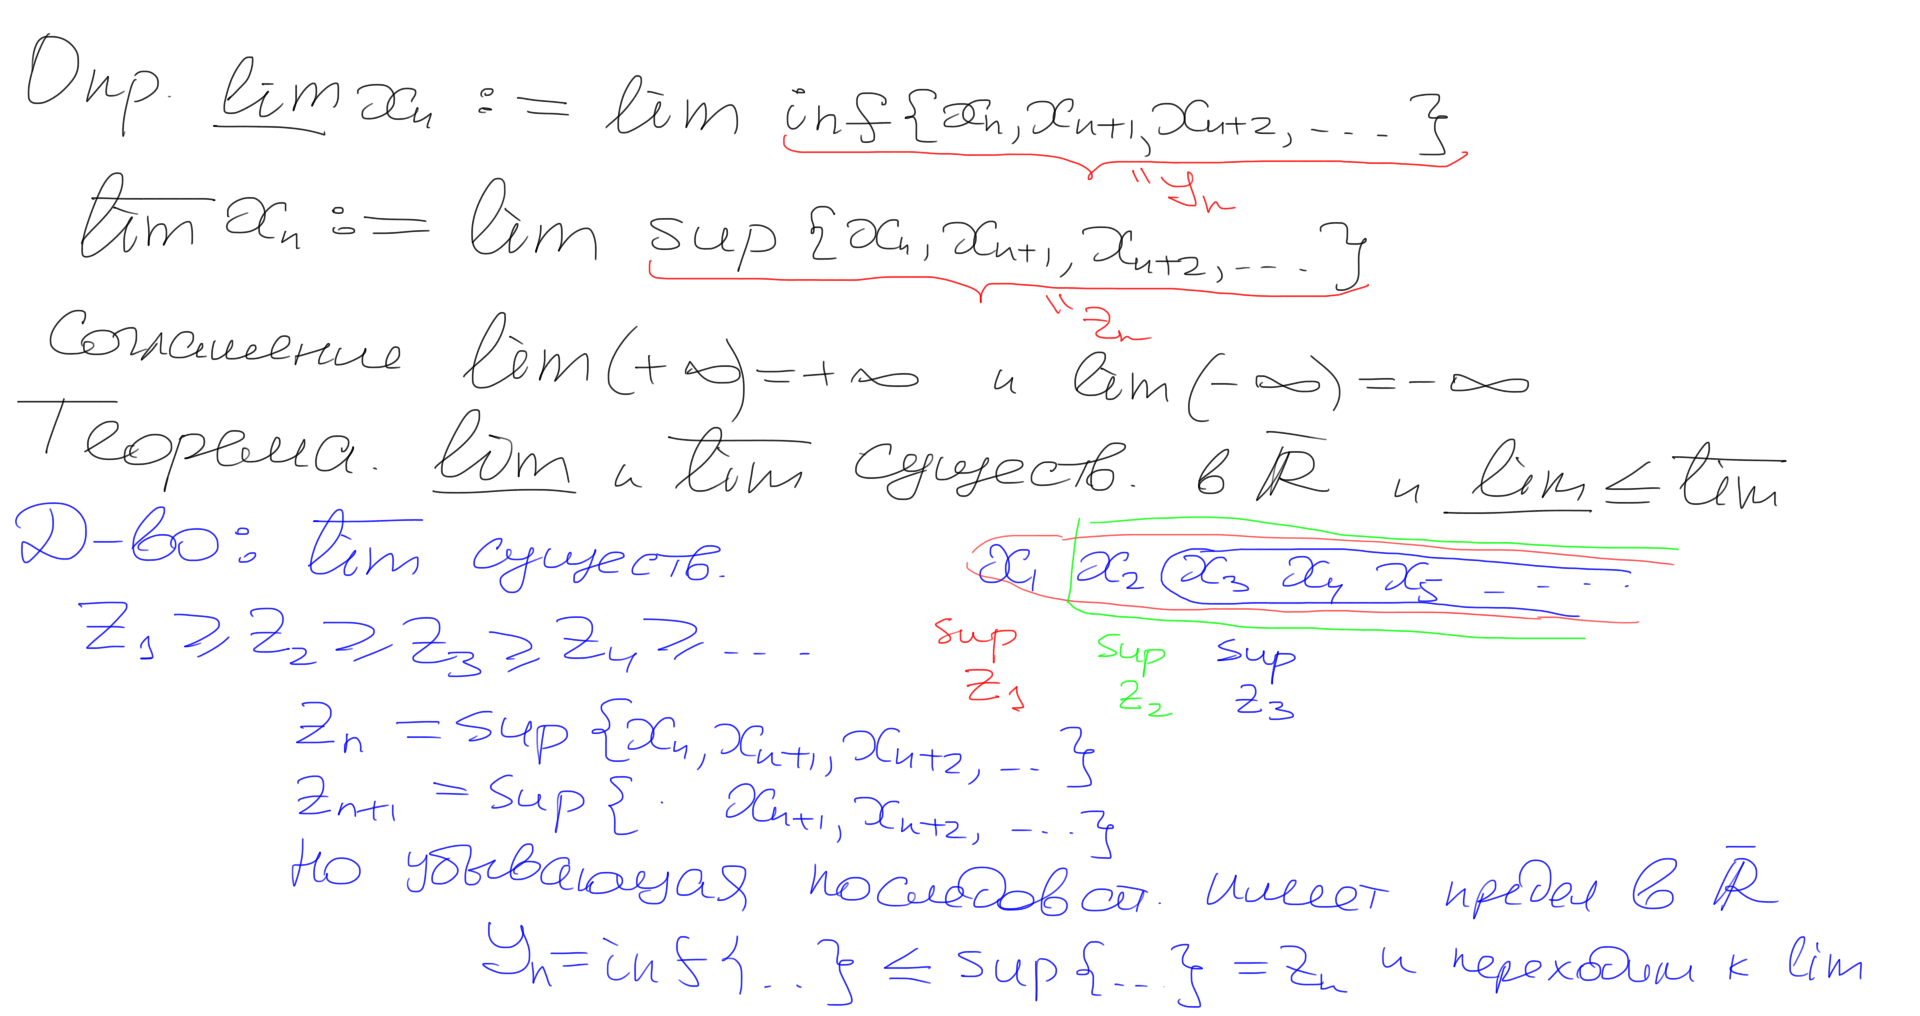 Опр. \underline{lim} xₙ := lim inf{xₙ, xₙ₊₁, xₙ₊₂, ....}
" yₙ
\overline{lim} xₙ := lim sup {xₙ, xₙ₊₁, xₙ₊₂, ....}
" zₙ
Соглашение lim(+∞)=+∞ и lim(-∞)=-∞
Теорема. \underline{lim} и \overline{lim} существ. в \overline{ℝ} и \underline{lim} ≤ \overline{lim}
Д-во: \overline{lim} существ.
x₁ x₂ x₃ x₄ x₅ - - ...
z₁ ⩾ z₂ ⩾ z₃ ⩾ z₄ ⩾ ...
sup sup sup
z₁ z₂ z₃
zₙ = sup {xₙ, xₙ₊₁, xₙ₊₂, ...}
zₙ₊₁ = sup { . xₙ₊₁, xₙ₊₂, ....}
Но убывающая последоват. имеет предел в \overline{ℝ}
yₙ = inf{...} ≤ sup{...} = zₙ и переходим к lim